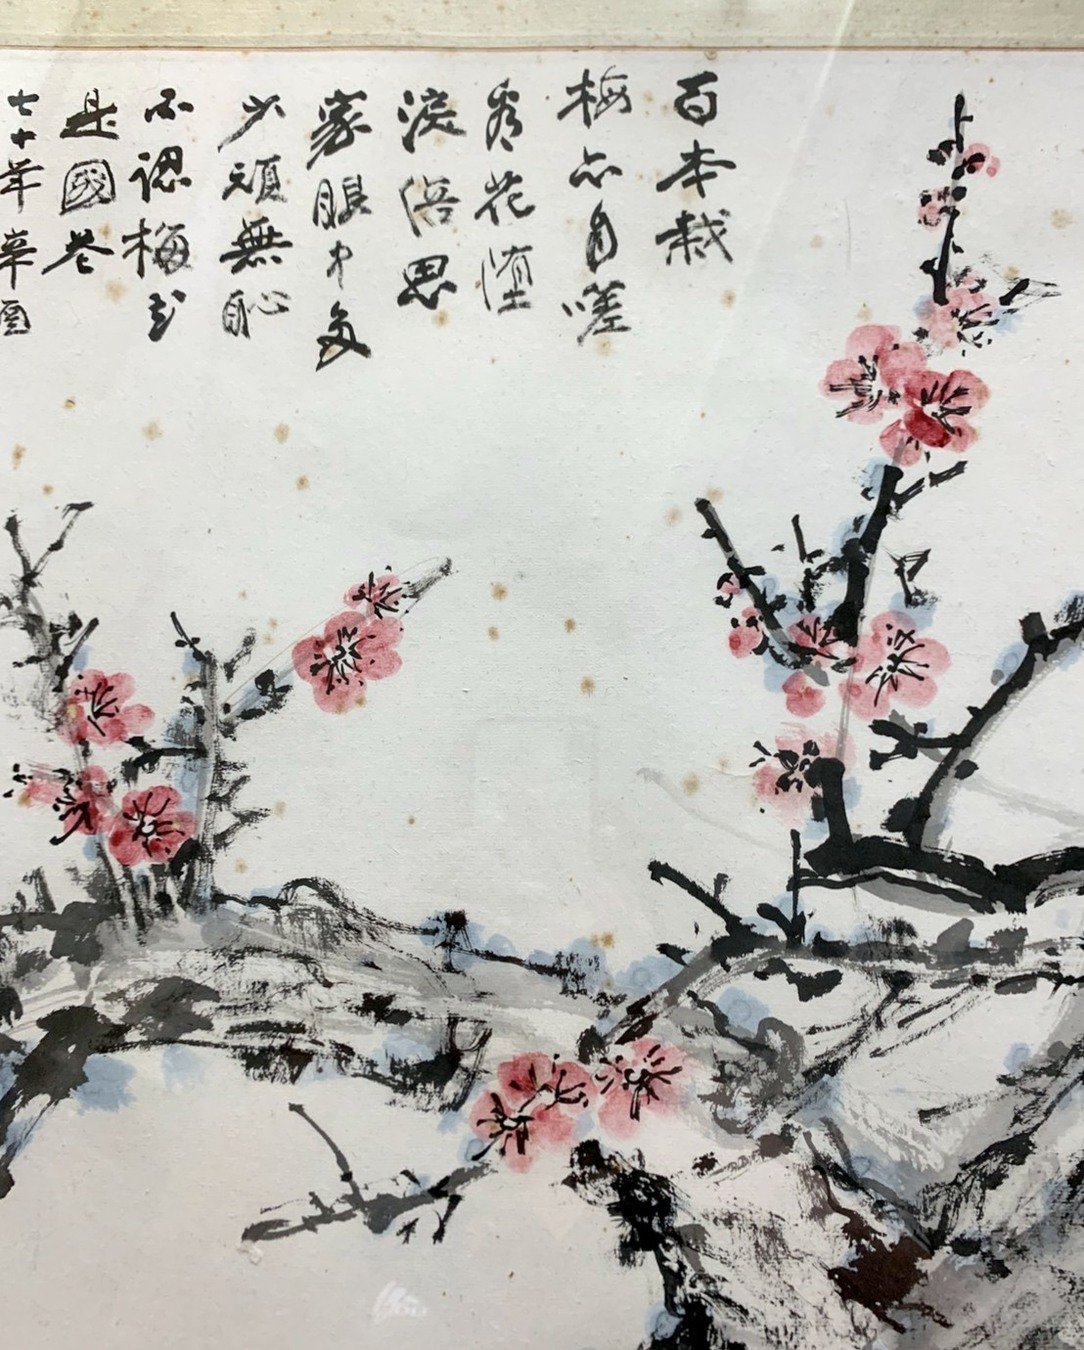 百本栽
梅亦自嗟
看花墮
淚倍思
家眼中多
少頑無恥
不認梅花
是國花
七十年辛酉